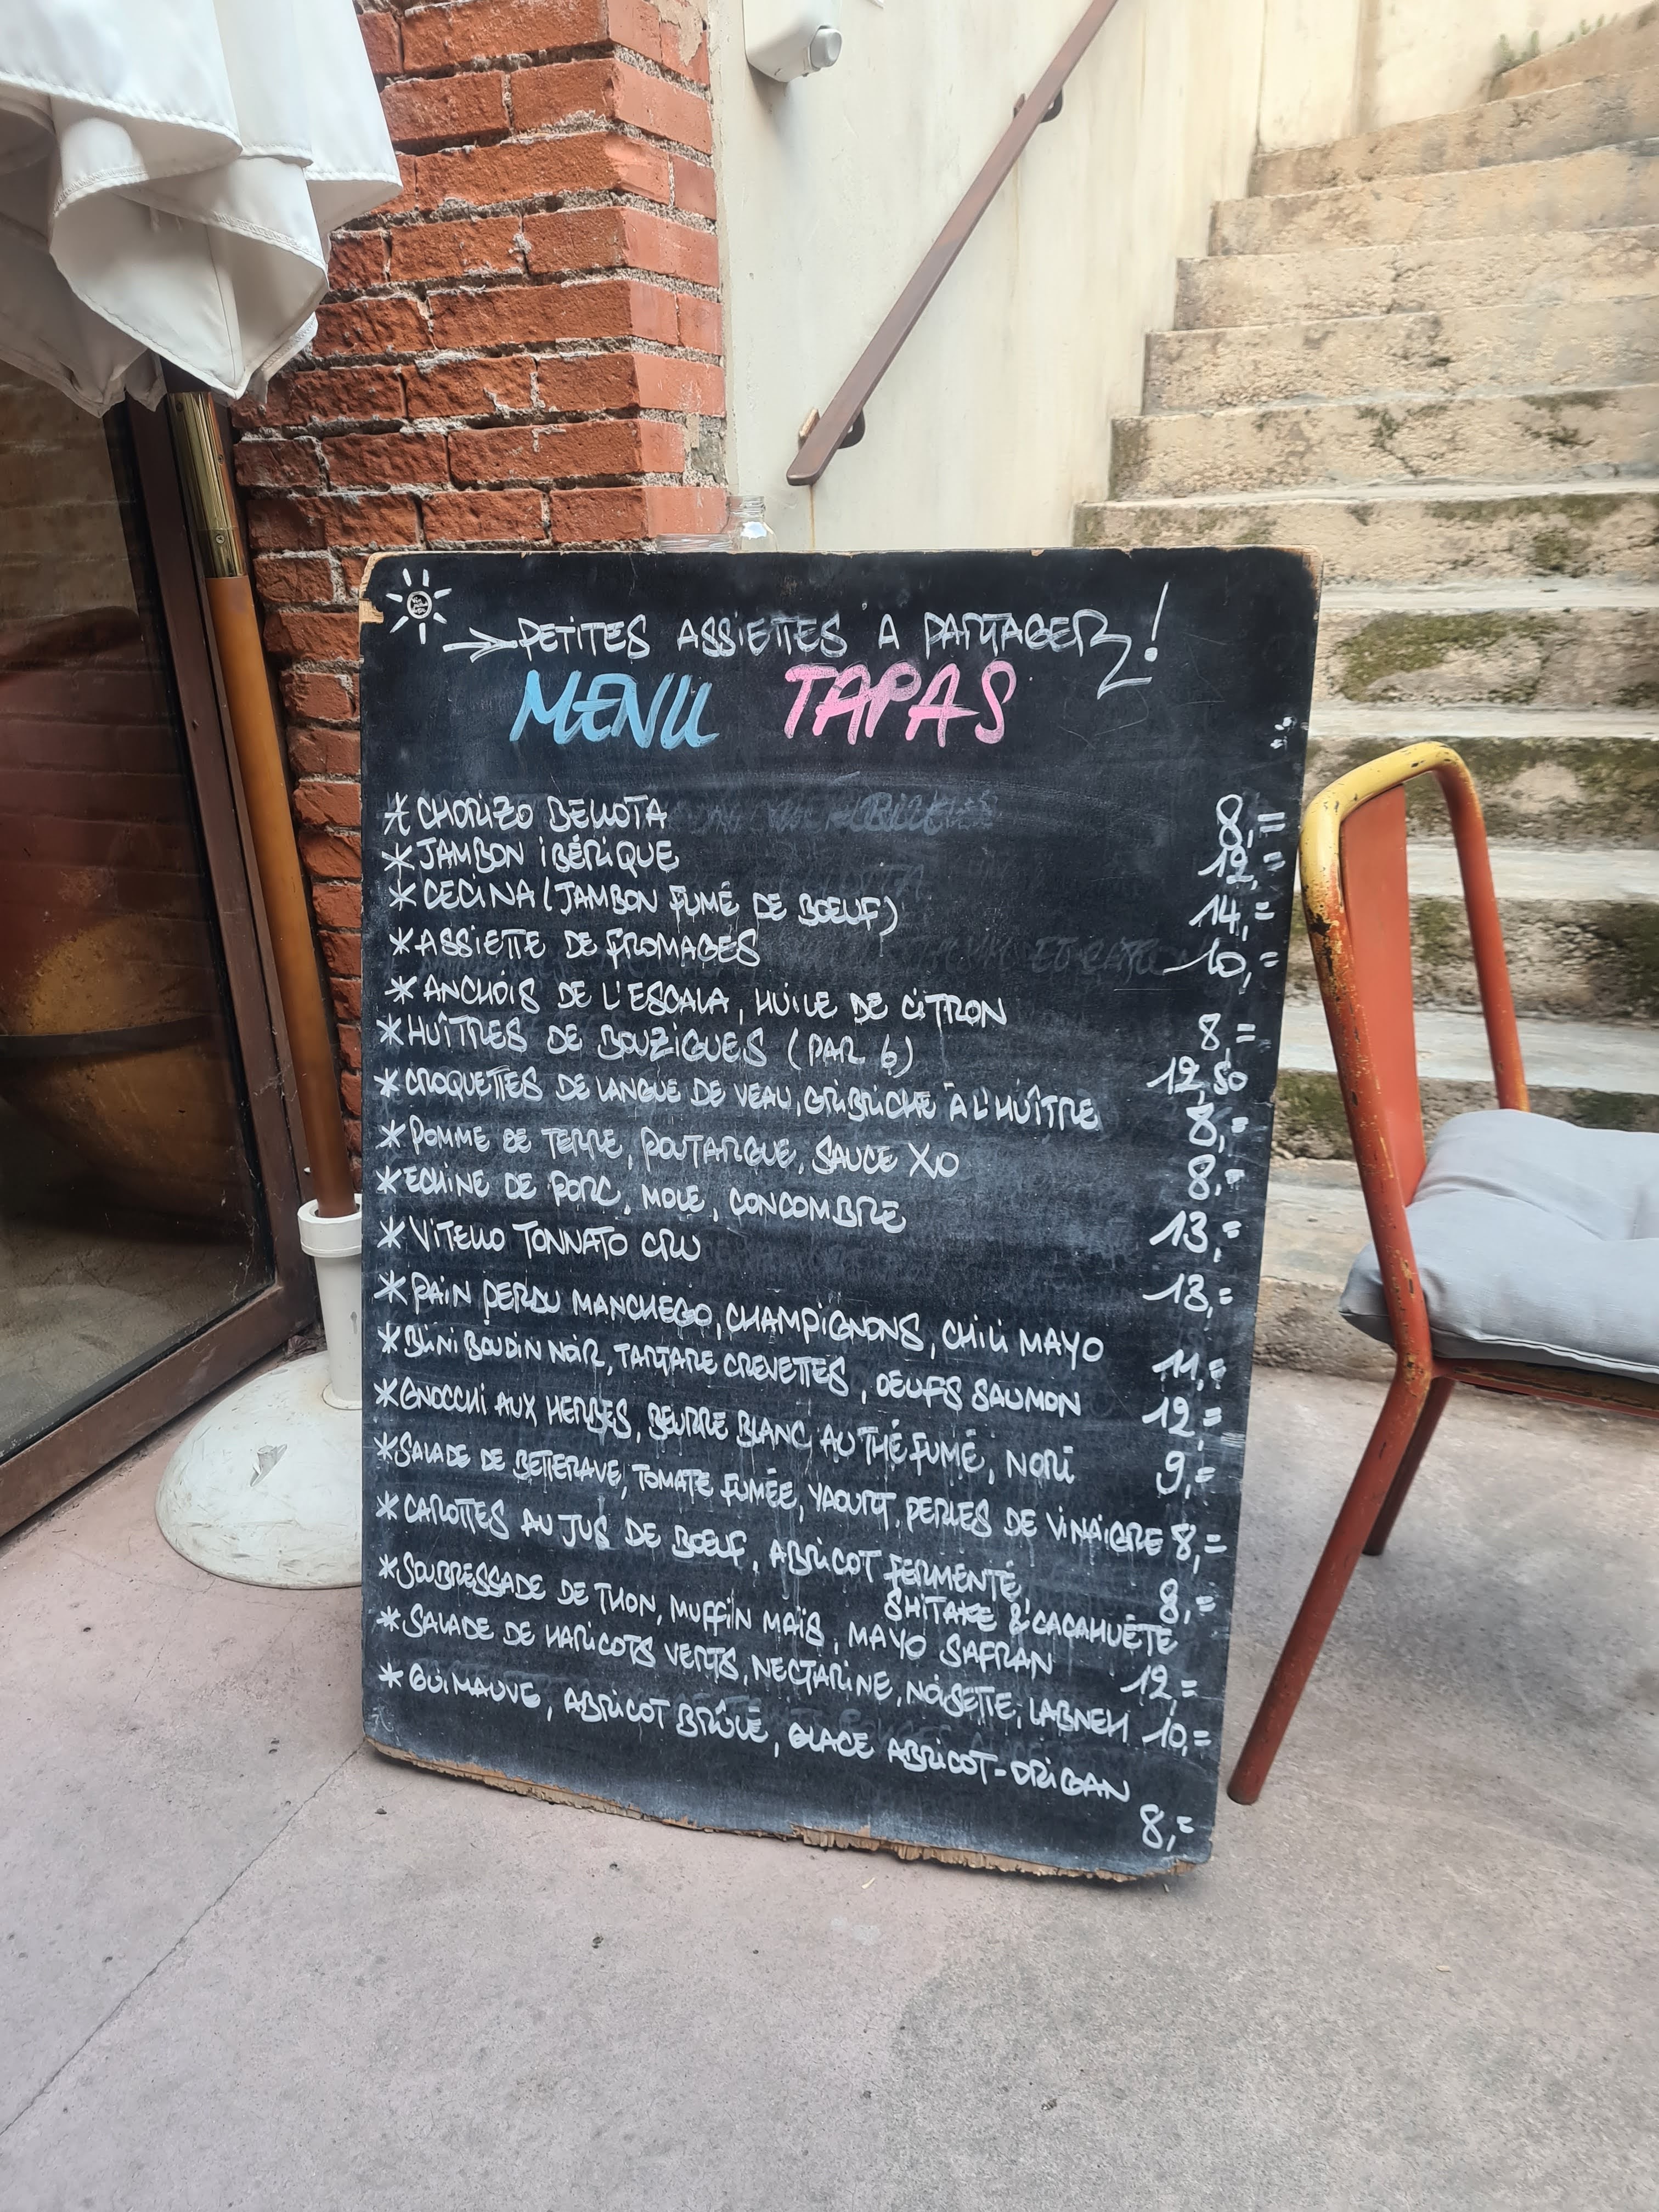 PETITES ASSIETTES A PARTAGER !
MENU TAPAS
* CHORIZO BELLOTA 8,=
* JAMBON IBÉRIQUE 12,=
* CECINA (JAMBON FUMÉ DE BOEUF) 14,=
* ASSIETTE DE FROMAGES 10,=
* ANCHOIS DE L'ESCALA, HUILE DE CITRON 8 =
* HUÎTRES DE BOUZIGUES (PAR 6) 12,50
* CROQUETTES DE LANGUE DE VEAU, GRIBICHE À L'HUÎTRE 8,=
* POMME DE TERRE, POUTARGUE, SAUCE XO 8,=
* ECHINE DE PORC, MOLE, CONCOMBRE 13,=
* VITELLO TONNATO CRU 13,=
* PAIN PERDU MANCHEGO, CHAMPIGNONS, CHILI MAYO 11,=
* BLINI BOUDIN NOIR, TARTARE CREVETTES, OEUFS SAUMON 12,=
* GNOCCHI AUX HERBES, BEURRE BLANC AU THÉ FUMÉ, NORI 9,=
* SALADE DE BETTERAVE, TOMATE FUMÉE, YAOURT, PERLES DE VINAIGRE 8,=
* CAROTTES AU JUS DE BOEUF, ABRICOT FERMENTÉ,
SHITAKE & CACAHUÈTE 8,=
* SOUBRESSADE DE THON, MUFFIN MAÏS, MAYO SAFRAN 12,=
* SALADE DE HARICOTS VERTS, NECTARINE, NOISETTE, LABNEH 10,=
* GUIMAUVE, ABRICOT BRÛLÉ, GLACE ABRICOT-ORIGAN
8,=